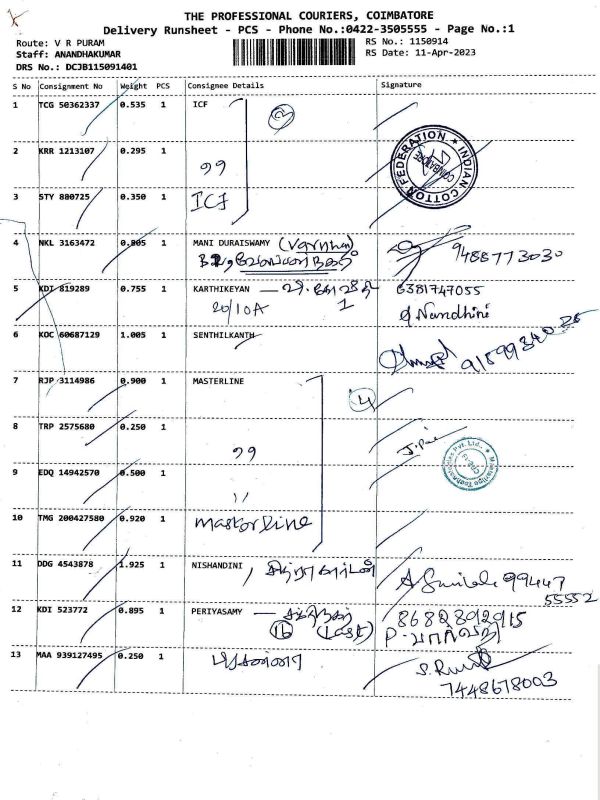 THE PROFESSIONAL COURIERS, COIMBATORE
Delivery Runsheet - PCS - Phone No.:0422-3505555 - Page No.:1
Route: V R PURAM
RS No.: 1150914
Staff: ANANDHAKUMAR
RS Date: 11-Apr-2023
DRS No.: DCJB115091401
S No Consignment No Weight PCS Consignee Details Signature
1 TCG 50362337 0.535 1 ICF
2 KRR 1213107 0.295 1 ,,
INDIAN COTTON FEDERATION COIMBATORE
3 STY 880725 0.350 1 ICF
4 NKL 3163472 0.805 1 MANI DURAISWAMY 9488773030
5 KDI 819289 0.755 1 KARTHIKEYAN 6381747055
20/10A 1 Nandhini
6 KOC 60687129 1.005 1 SENTHILKANTH
7 RJP 3114986 0.900 1 MASTERLINE 4
8 TRP 2575680 0.250 1 ,,
9 EDQ 14942570 0.500 1 ,,
10 TMG 200427580 0.920 1 Masterline
11 DDG 4543878 1.925 1 NISHANDINI 99447
55552
12 KDI 523772 0.895 1 PERIYASAMY
16 (Last)
13 MAA 939127495 0.250 1
7448678003